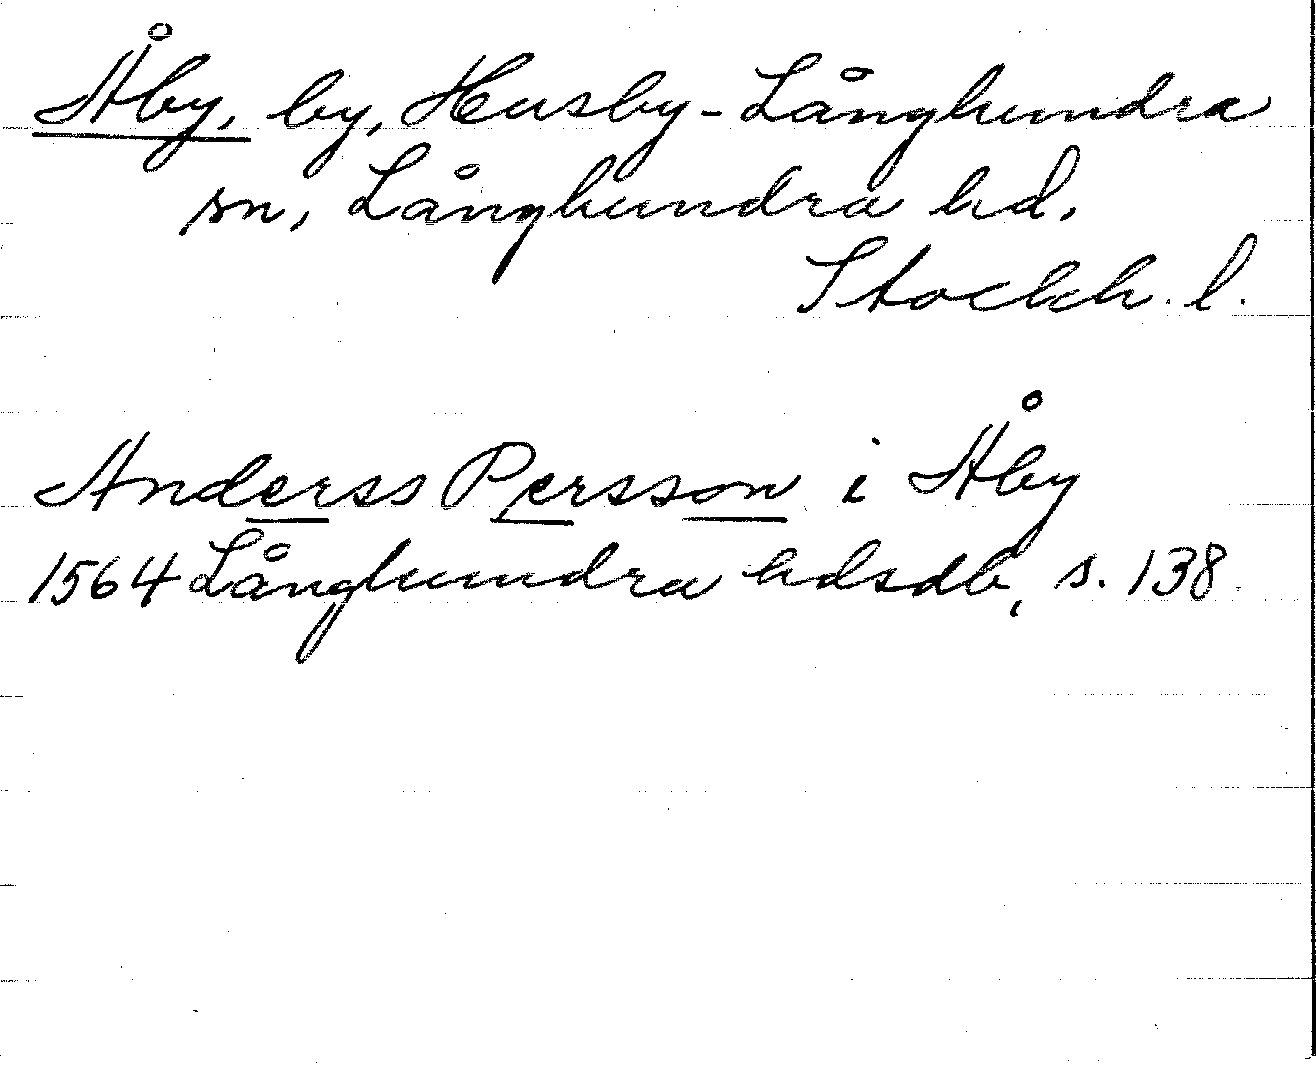 Åby, by, Husby-Långhundra
sn, Långhundra hd.
Stockh. l.
Anderss Persson i Åby
1564 Långhundra hdsdb, s. 138